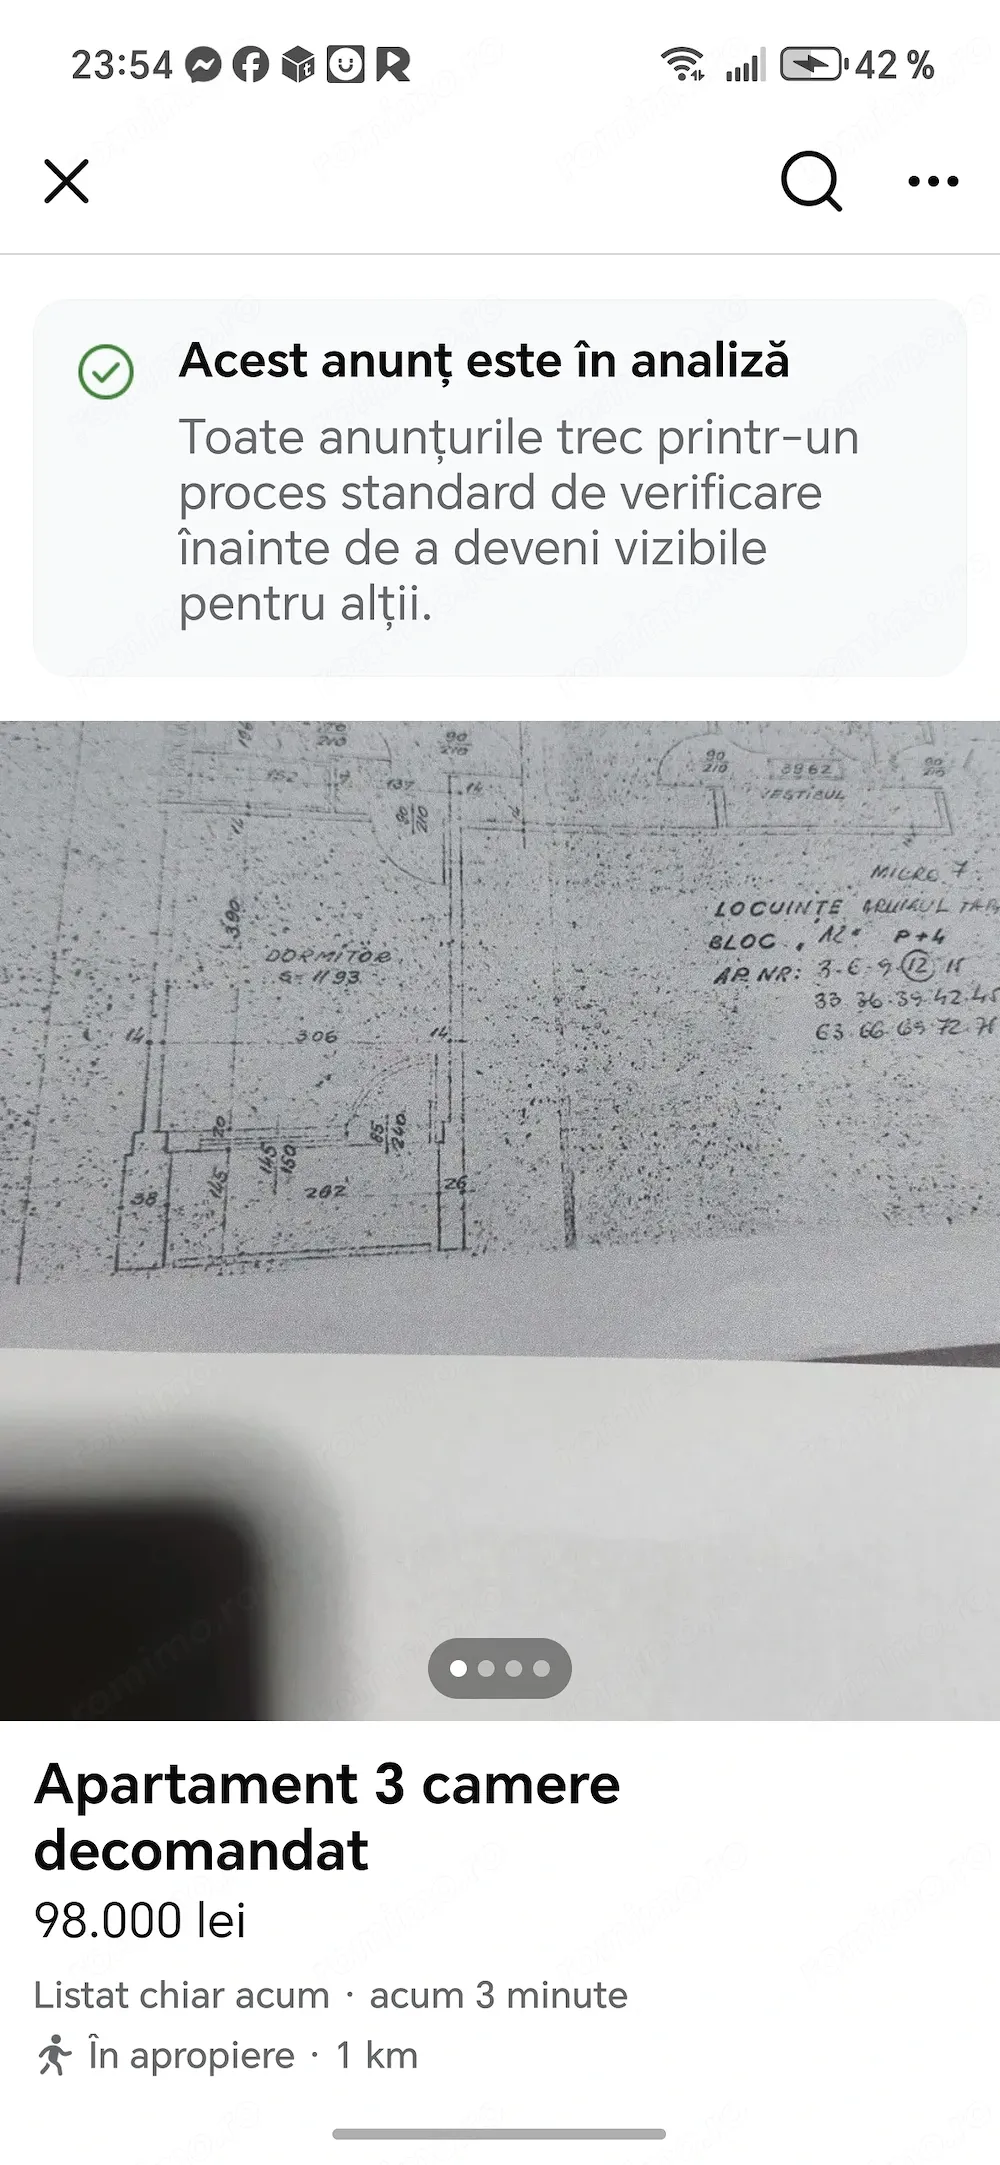 23:54
42 %
Acest anunț este în analiză
Toate anunțurile trec printr-un
proces standard de verificare
înainte de a deveni vizibile
pentru alții.
90
210
90
210
3962
VESTIBUL
137
14
90
210
14
390
DORMITOR
S= 1193
MICRO 7
LOCUINȚE
BLOC
P+4
AP. NR: 3-6-9-12-15
33 36-39-42-45
63 66 69 72
14
306
14
20
145
150
85
240
145
38
262
26
Apartament 3 camere
decomandat
98.000 lei
Listat chiar acum · acum 3 minute
În apropiere · 1 km